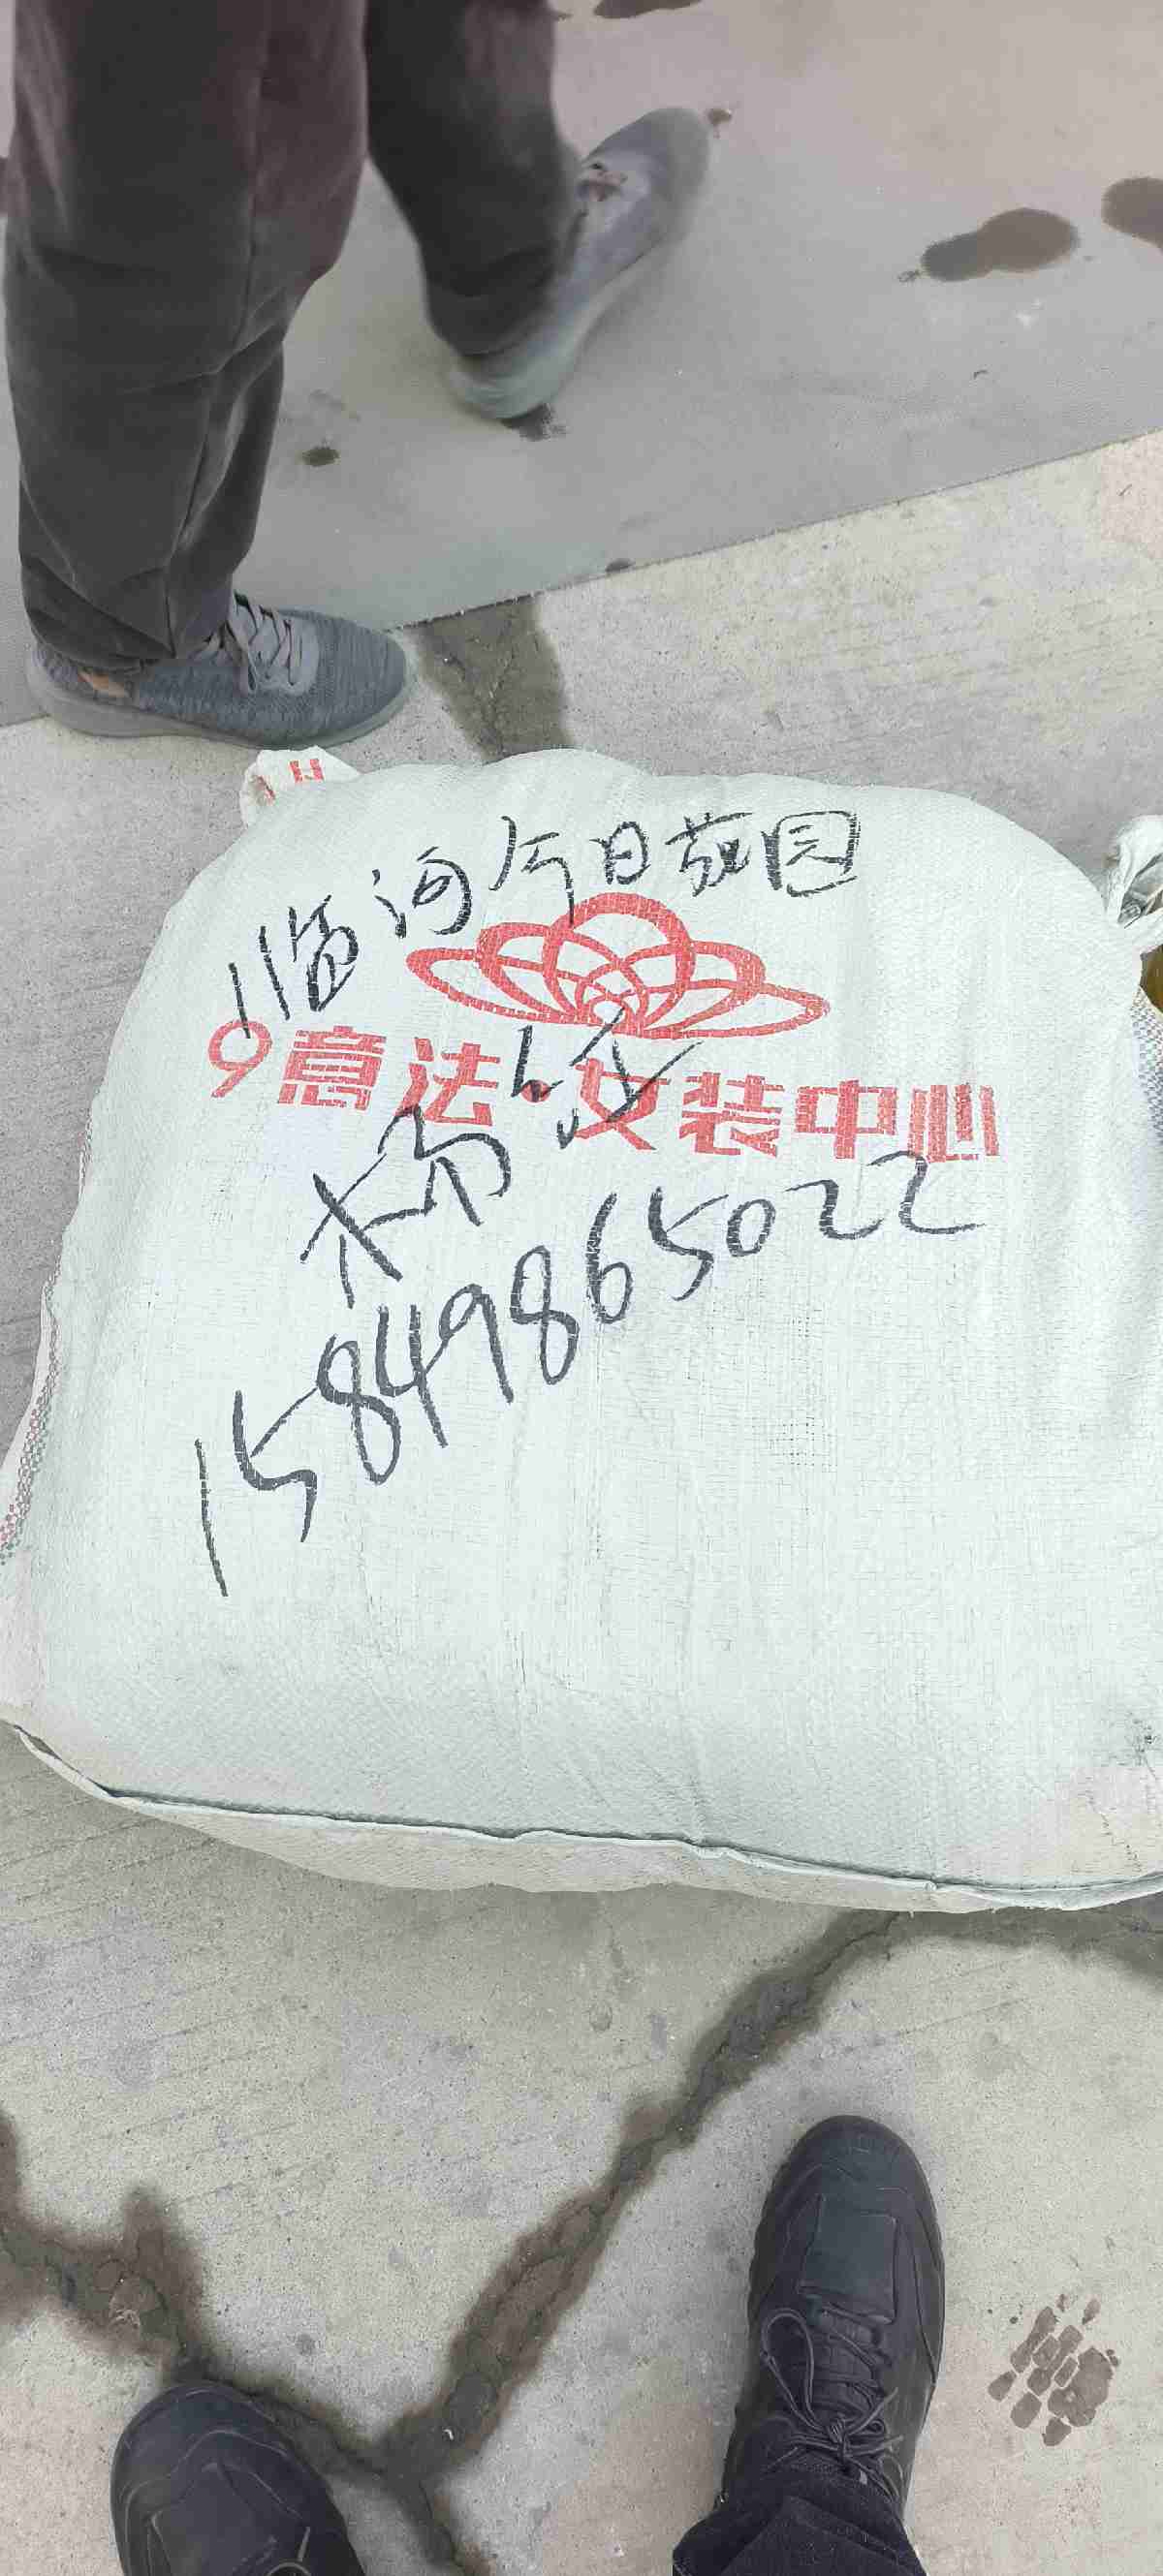 临河今日花园
9意法·女装中心
15849865022